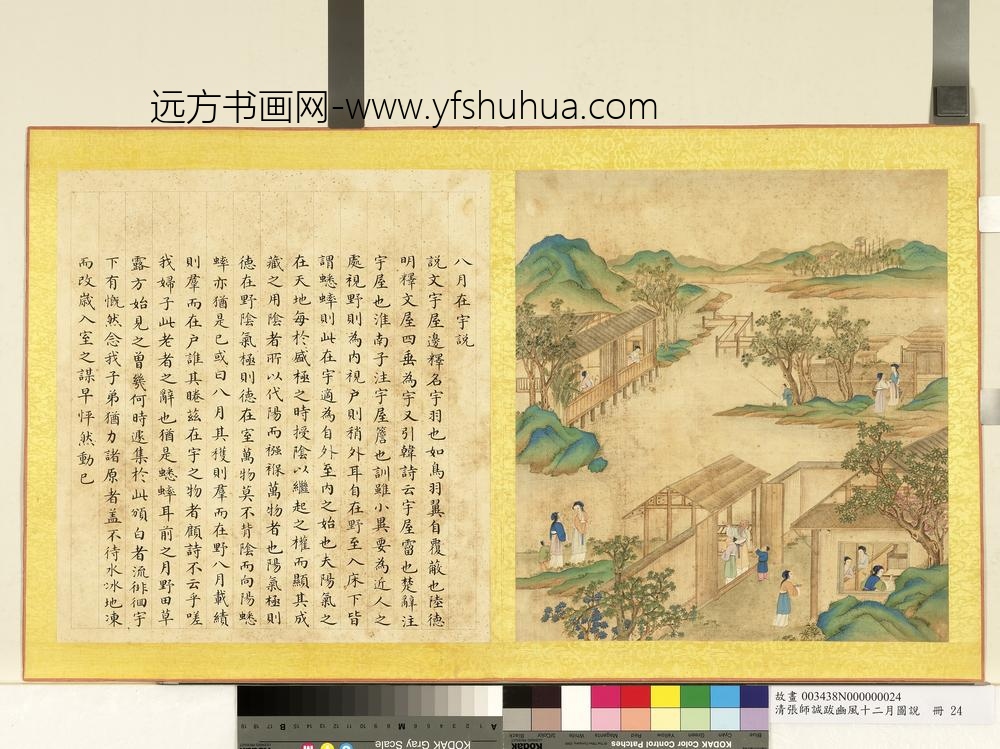 远方书画网-www.yfshuhua.com
八月在宇説
説文宇屋邊釋名宇羽也如鳥羽翼自覆蔽也陸德
明釋文屋四垂為宇又引韓詩云宇屋霤也楚辭注
宇屋也淮南子注宇屋簷也訓雖小異要為近人之
處視野則為內視戶則稍外耳自在野至入床下皆
謂蟋蟀則此在宇適為自外至內之始也夫陽氣之
在天地每於盛極之時授陰以繼起之權而顯其成
藏之用陰者所以代陽而襁褓萬物者也陽氣極則
德在野陰氣極則德在室萬物莫不背陰而向陽蟋
蟀亦猶是已或曰八月其穫則羣而在野八月載績
則羣而在戶誰其睠茲在宇之物者顧詩不云乎嗟
我婦子此老者之辭也猶是蟋蟀耳前之月野田草
露方始見之曽幾何時遽集於此頒白者流徘徊宇
下有慨然念我子弟猶力諸原者蓋不待水冰地凍
而改歲入室之謀早怦然動已
故畫 003438N000000024
清張師誠跋豳風十二月圖説 冊 24
KODAK Gray Scale
KODAK Color Control Patches
Blue
Cyan
Green
Yellow
Red
Magenta
White
3/Color
Black
A
M
B